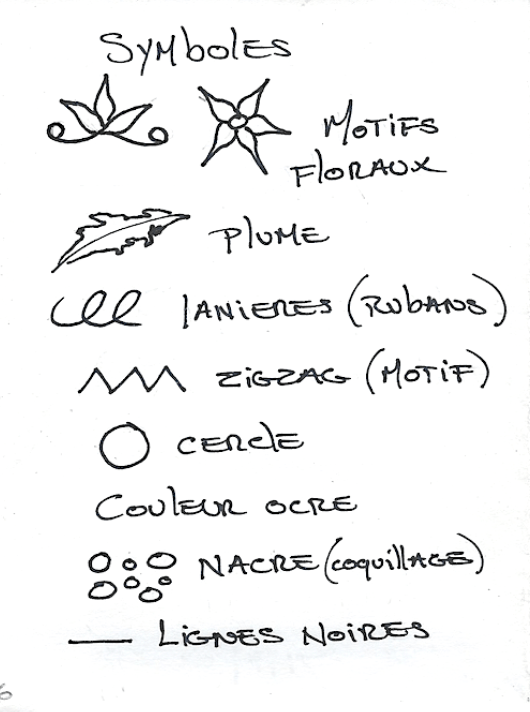 Symboles
Motifs
Floraux
Plume
lanieres (Rubans)
zigzag (Motif)
cercle
Couleur ocre
Nacre (coquillage)
Lignes Noires
6